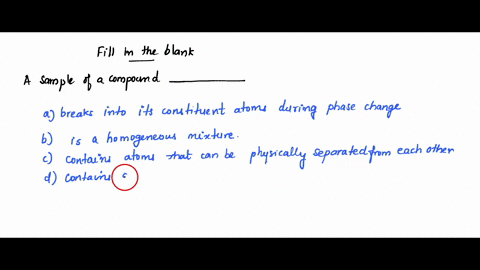 Fill in the blank
A sample of a compound ___________
a) breaks into its constituent atoms during phase change
b) is a homogeneous mixture.
c) contains atoms that can be physically separated from each other
d) contains